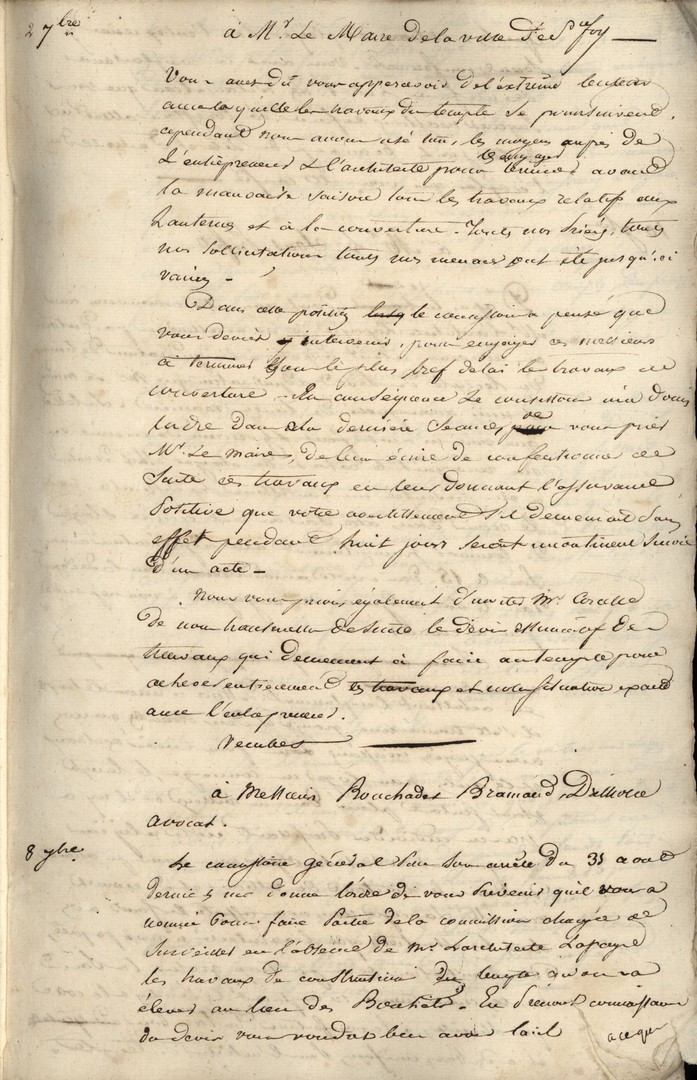 2 7bre
à Mr. Le Maire de la ville de Ste foy
Vous avez dû vous appercevoir de l'extrême lenteur
avec laquelle les travaux du temple se poursuivent.
cependant nous avons usé tous les moyens auprès de
L'entrepreneur & l'architecte pour terminer avant
la mauvaise saison tous les travaux relatifs aux
Lanternes et à la couverture - Toutes nos prières, toutes
nos sollicitations toutes nos menaces ont été jusqu'ici
vaines -
Dans cette position le consistoire a pensé que
vous deviez intervenir, pour engager ces messieurs
à terminer dans le plus bref delai les travaux de
couverture - En conséquence Le consistoire m'a donné
lordre dans la derniere seance de vous prier
Mr. Le maire, de leur écrire de confectionner de
suite ces travaux en leur donnant l'assurance
positive que votre avertissement s'il demeurait sans
effet pendant huit jours serait incontinent suivie
d'un acte -
Nous vous prions également d'inviter Mr.
de nous transmettre de suite le devis estimatif des
travaux qui demeurent à faire au temple pour
achever entierement les travaux et notre situation
avec l'entrepreneur.
à Messieurs Bouchadet Bramand,
avocat.
8 7bre
Le consistoire général dans son arrêté du 31 aout
dernier m'a donné lordre de vous prévenir qu'il vous a
nommé pour faire partie de la commission chargée de
surveiller en l'absence de Mr L'architecte
les travaux de construction du temple qu'on va
élever au lieu des Bouhets. En prenant connaissance
du devis vous voudrez bien avoir l'œil
a ce que